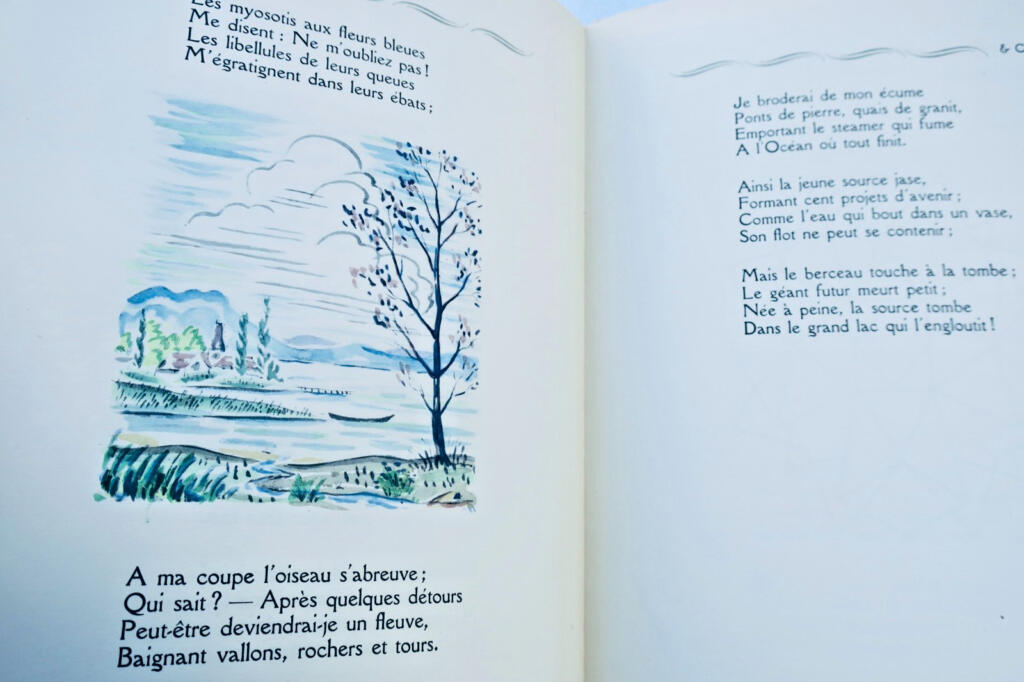 Les myosotis aux fleurs bleues
Me disent : Ne m'oubliez pas !
Les libellules de leurs queues
M'égratignent dans leurs ébats ;
A ma coupe l'oiseau s'abreuve ;
Qui sait ? — Après quelques détours
Peut-être deviendrai-je un fleuve,
Baignant vallons, rochers et tours.
&
Je broderai de mon écume
Ponts de pierre, quais de granit,
Emportant le steamer qui fume
A l'Océan où tout finit.
Ainsi la jeune source jase,
Formant cent projets d'avenir ;
Comme l'eau qui bout dans un vase,
Son flot ne peut se contenir ;
Mais le berceau touche à la tombe ;
Le géant futur meurt petit ;
Née à peine, la source tombe
Dans le grand lac qui l'engloutit !